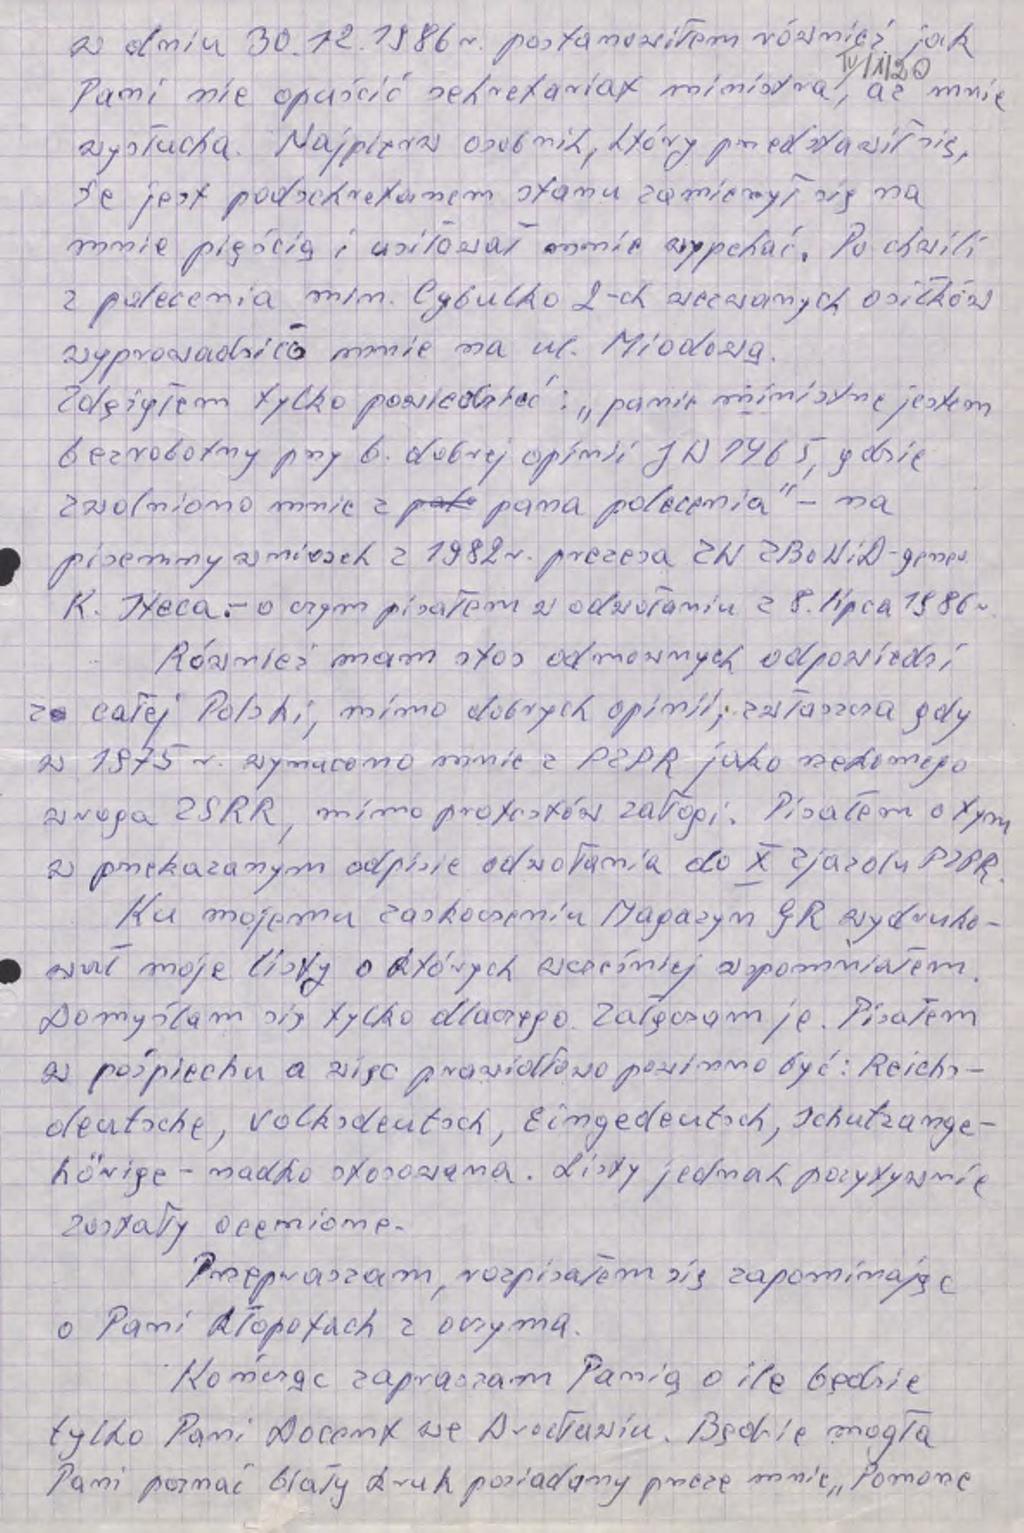 w dniu 30.12.1986 r. postanowiłem również jak
IV/1/20
Pani nie opuścić sekretariat ministra, aż mnie
wysłucha. Najpierw osobnik, który przedstawił się,
że jest podsekretarzem stanu zamierzył się na
mnie pięścią i usiłował mnie wypchać. Po chwili
z polecenia min. Cybulko 2-ch wezwanych osiłków
wyprowadziło mnie na ul. Miodową.
Zdążyłem tylko powiedzieć: „panie ministrze jestem
bezrobotny przy b. dobrej opinii JW 1465, gdzie
zwolniono mnie z pana polecenia" – na
pisemny wniosek z 1982 r. prezesa ZW ZBoWiD – gener.
K. Steca. – o czym pisałem w odwołaniu z 8. lipca 1986 r.
Również mam stos odmownych odpowiedzi
z całej Polski, mimo dobrych opinii, zwłaszcza gdy
w 1975 r. wyrzucono mnie z PZPR jako rzekomego
wroga ZSRR, mimo protestów załogi. Pisałem o tym
w przekazanym odpisie odwołania do X Zjazdu PZPR.
Ku mojemu zaskoczeniu Magazyn GR wydruko-
wał moje listy o których wcześniej wspomniałem.
Domyślam się tylko dlaczego. Załączam je. Pisałem
w pośpiechu a więc prawidłowo powinno być: Reichs-
deutsche, Volksdeutsch, Eingedeutsch, Schutzange-
hörige – rzadko stosowana. Listy jednak pozytywnie
zostały ocenione.
Przepraszam, rozpisałem się zapominając
o Pani kłopotach z oczyma.
Kończąc zapraszam Panią o ile będzie
tylko Pani Docent we Wrocławiu. Będzie mogła
Pani poznać biały kruk posiadany przeze mnie „Pomone